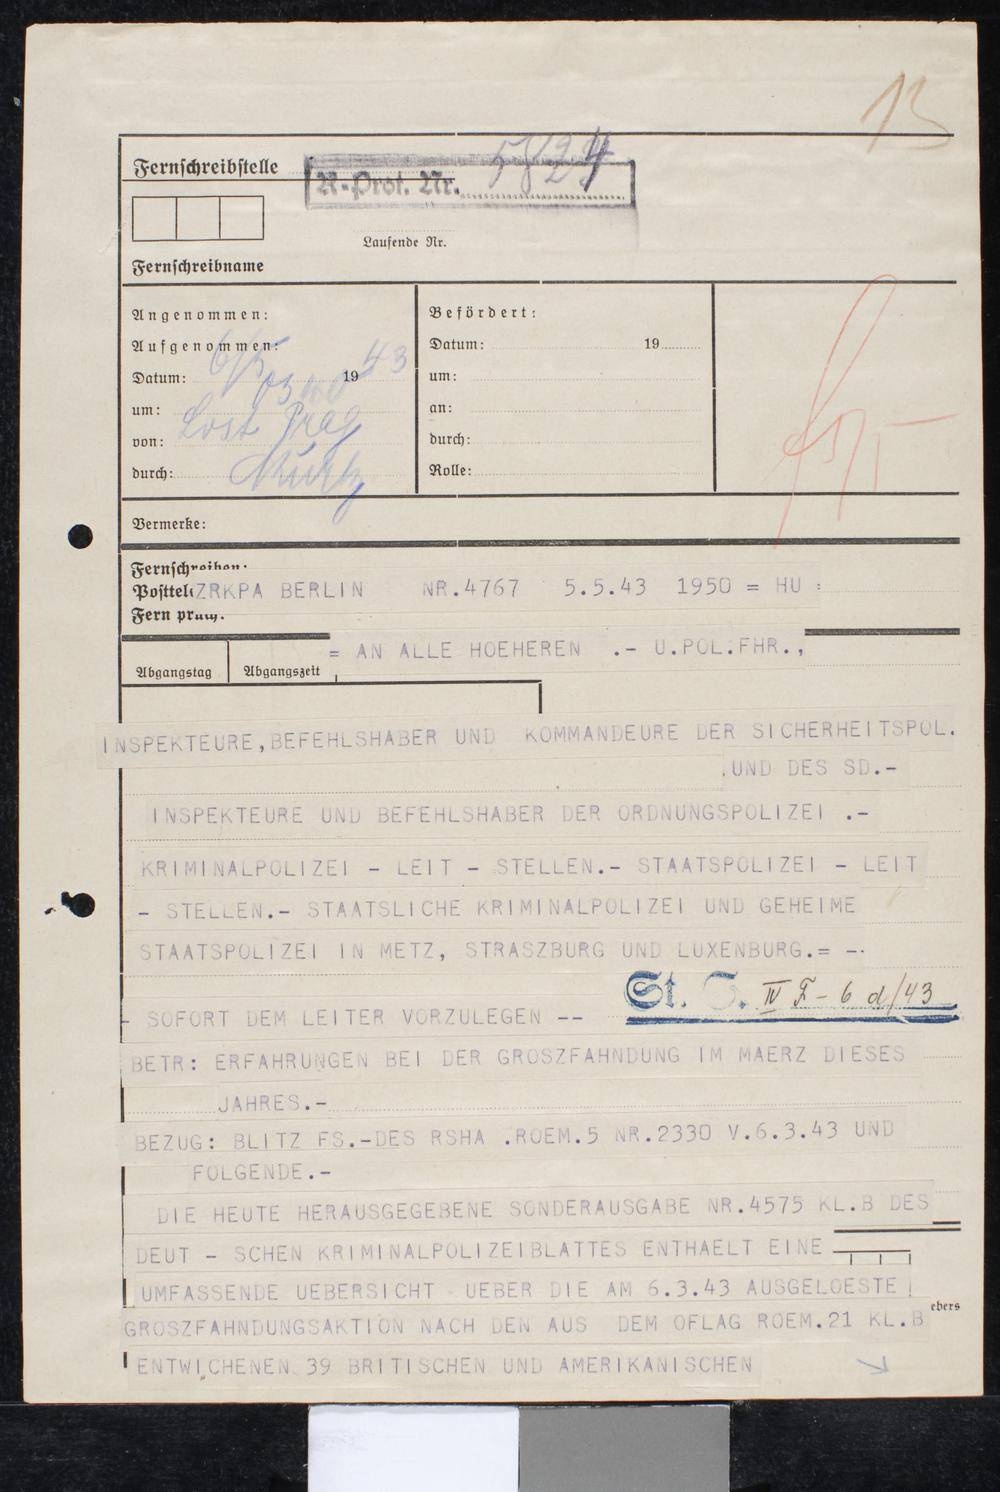 13
Fernschreibstelle
R-Prot. Nr. 5824
Laufende Nr.
Fernschreibname
Angenommen:
Aufgenommen:
Datum: 6/5 19 43
um:
von: Lost Prag
durch:
Befördert:
Datum: 19
um:
an:
durch:
Rolle:
Vermerke:
Fernschreiben.
ZRKPA BERLIN NR.4767 5.5.43 1950 = HU :
= AN ALLE HOEHEREN .- U.POL.FHR.,
Abgangstag Abgangszeit
INSPEKTEURE, BEFEHLSHABER UND KOMMANDEURE DER SICHERHEITSPOL.
.UND DES SD.-
INSPEKTEURE UND BEFEHLSHABER DER ORDNUNGSPOLIZEI .-
KRIMINALPOLIZEI - LEIT - STELLEN.- STAATSPOLIZEI - LEIT
- STELLEN.- STAATSLICHE KRIMINALPOLIZEI UND GEHEIME
STAATSPOLIZEI IN METZ, STRASZBURG UND LUXENBURG.= -.
St. S. IV F - 6 d/43
- SOFORT DEM LEITER VORZULEGEN --
BETR: ERFAHRUNGEN BEI DER GROSZFAHNDUNG IM MAERZ DIESES
JAHRES.-
BEZUG: BLITZ FS.-DES RSHA .ROEM.5 NR.2330 V.6.3.43 UND
FOLGENDE.-
DIE HEUTE HERAUSGEGEBENE SONDERAUSGABE NR.4575 KL.B DES
DEUT - SCHEN KRIMINALPOLIZEIBLATTES ENTHAELT EINE
UMFASSENDE UEBERSICHT UEBER DIE AM 6.3.43 AUSGELOESTE
ebers
GROSZFAHNDUNGSAKTION NACH DEN AUS DEM OFLAG ROEM.21 KL.B
ENTWICHENEN 39 BRITISCHEN UND AMERIKANISCHEN